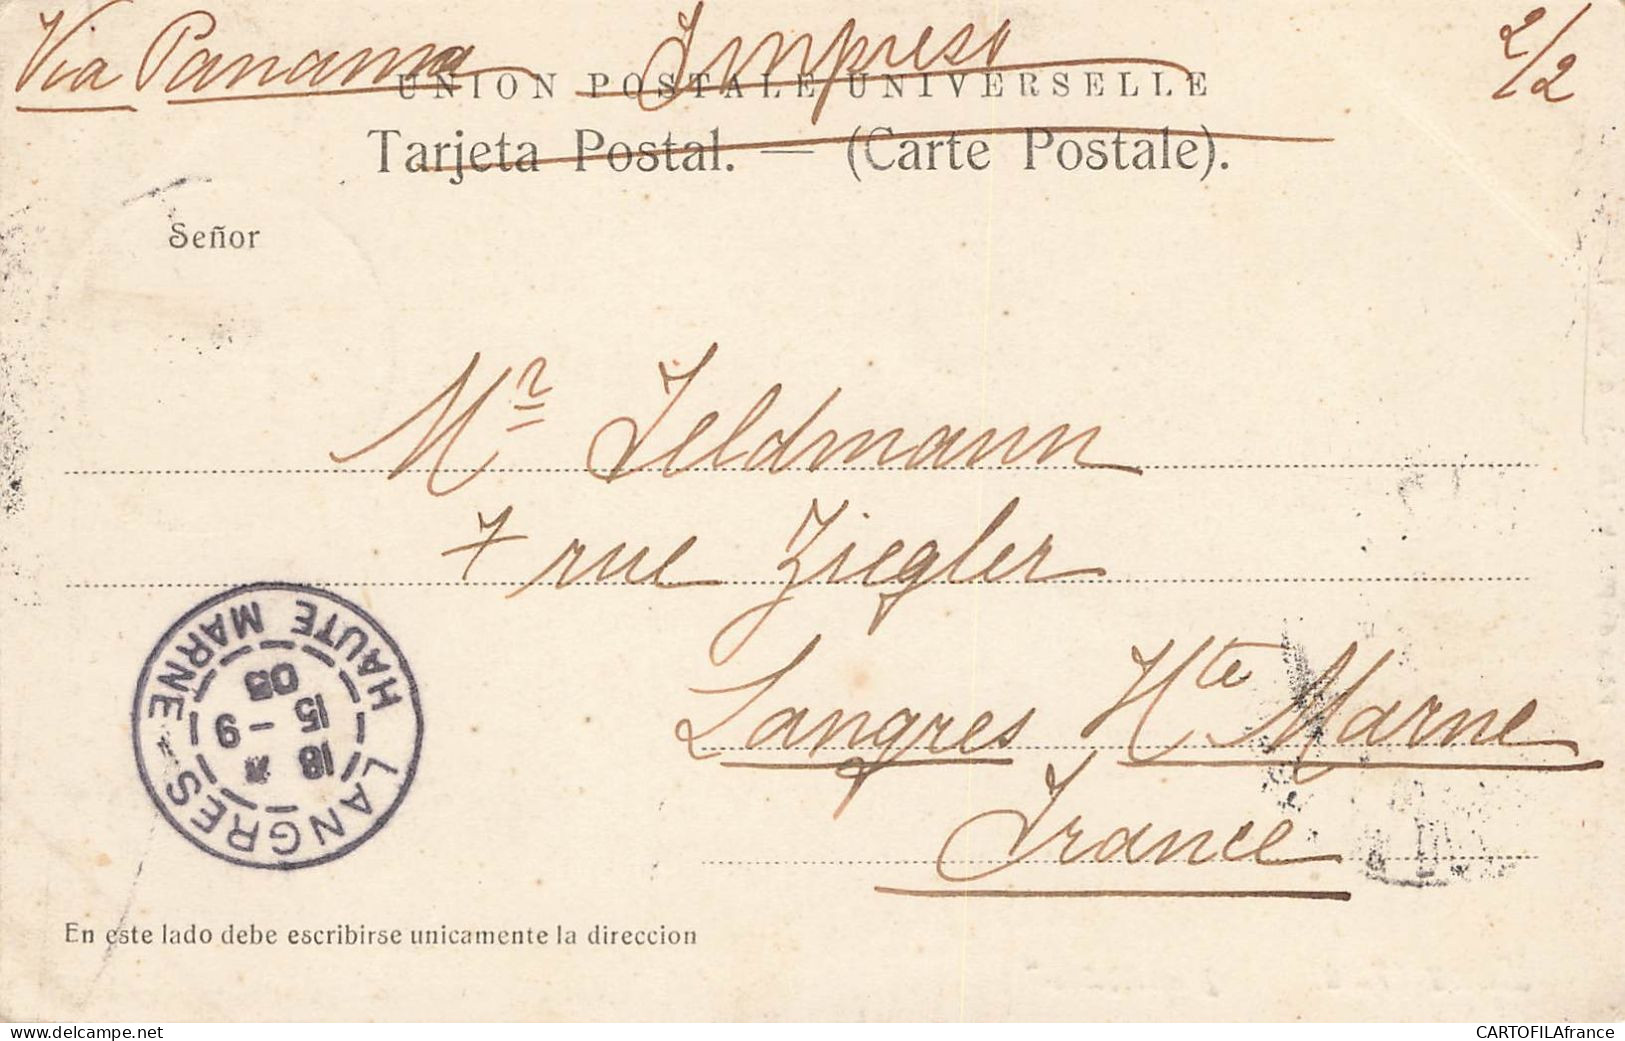 Via Panama Impreso 2/2
UNION POSTALE UNIVERSELLE
Tarjeta Postal. — (Carte Postale).
Señor
Mr Feldmann
7 rue Ziegler
Langres Hte Marne
France
LANGRES HAUTE MARNE
18 *
15 - 9
05
En este lado debe escribirse unicamente la direccion
www.delcampe.net
CARTOFILAfrance